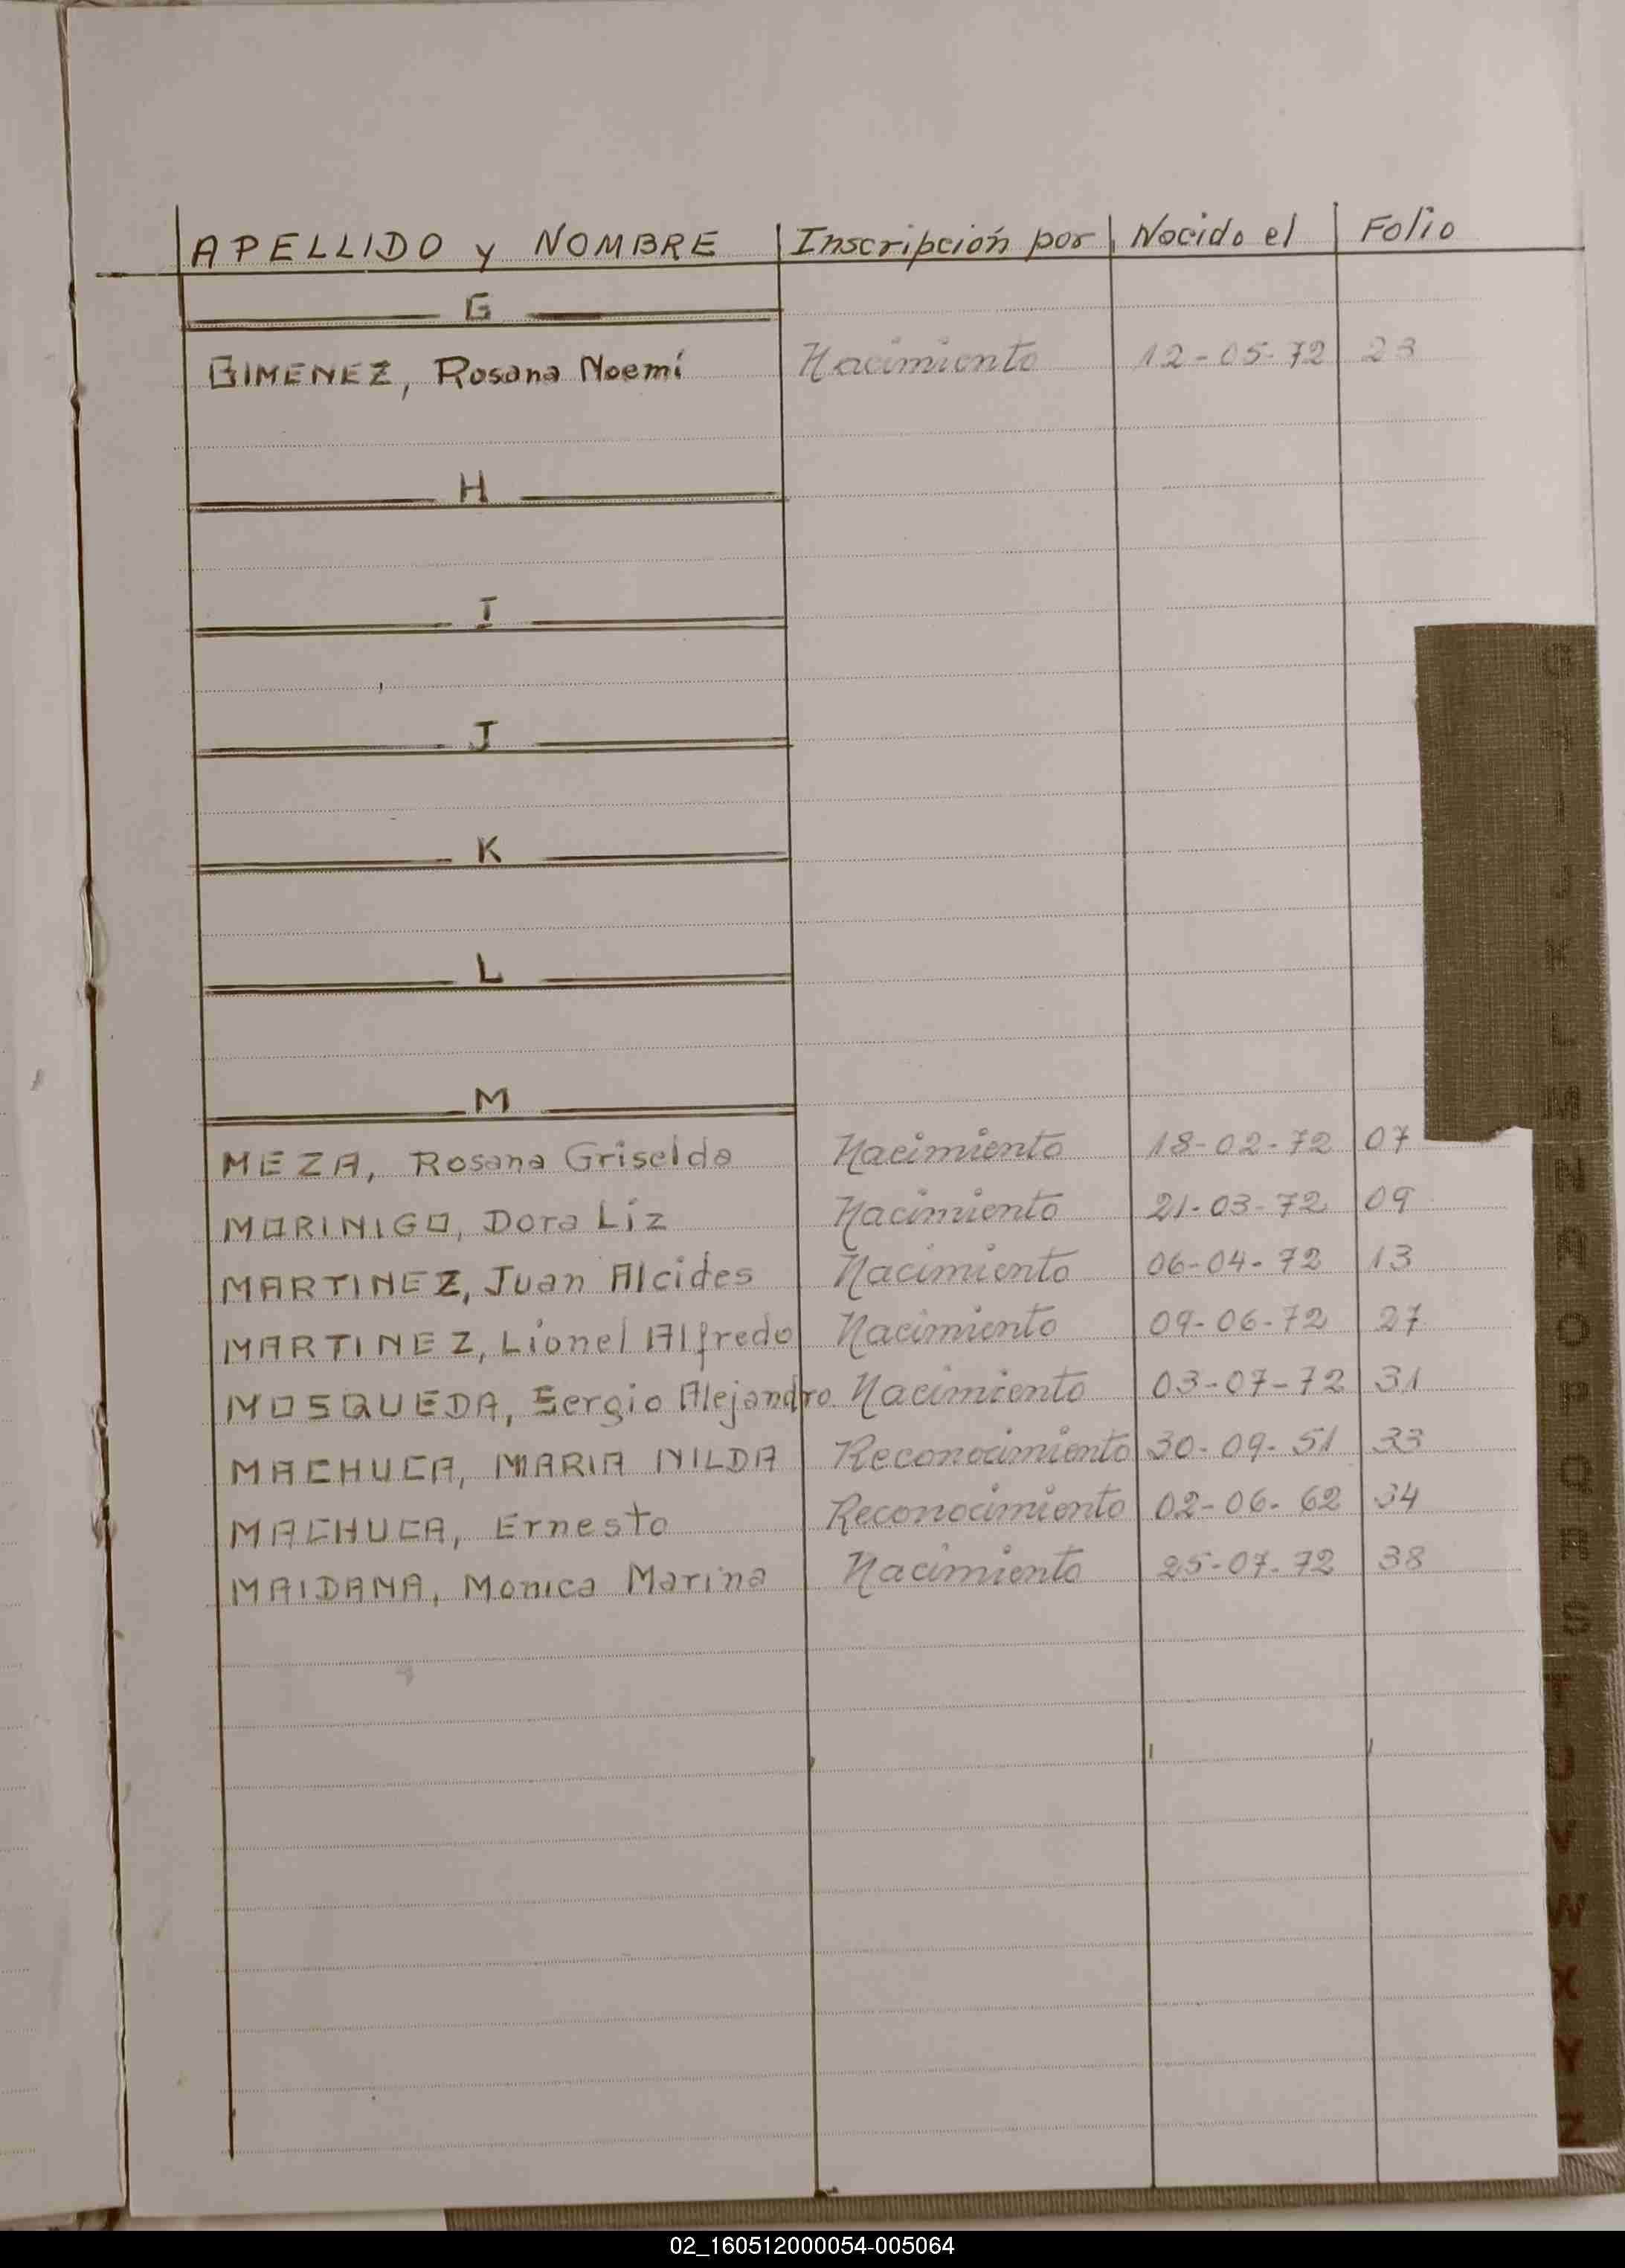 APELLIDO y NOMBRE Inscripción por Nacido el Folio
G
GIMENEZ, Rosana Noemí Nacimiento 12-05-72 23
H
I
J
K
L
M
MEZA, Rosana Griselda Nacimiento 18-02-72 07
MORINIGO, Dora Liz Nacimiento 21-03-72 09
MARTINEZ, Juan Alcides Nacimiento 06-04-72 13
MARTINEZ, Lionel Alfredo Nacimiento 09-06-72 27
MOSQUEDA, Sergio Alejandro Nacimiento 03-07-72 31
MACHUCA, MARIA NILDA Reconocimiento 30-09-51 33
MACHUCA, Ernesto Reconocimiento 02-06-62 34
MAIDANA, Monica Marina Nacimiento 25-07-72 38
G
H
I
J
K
L
M
N
Ñ
O
P
Q
R
S
T
U
V
W
X
Y
Z
02_160512000054-005064